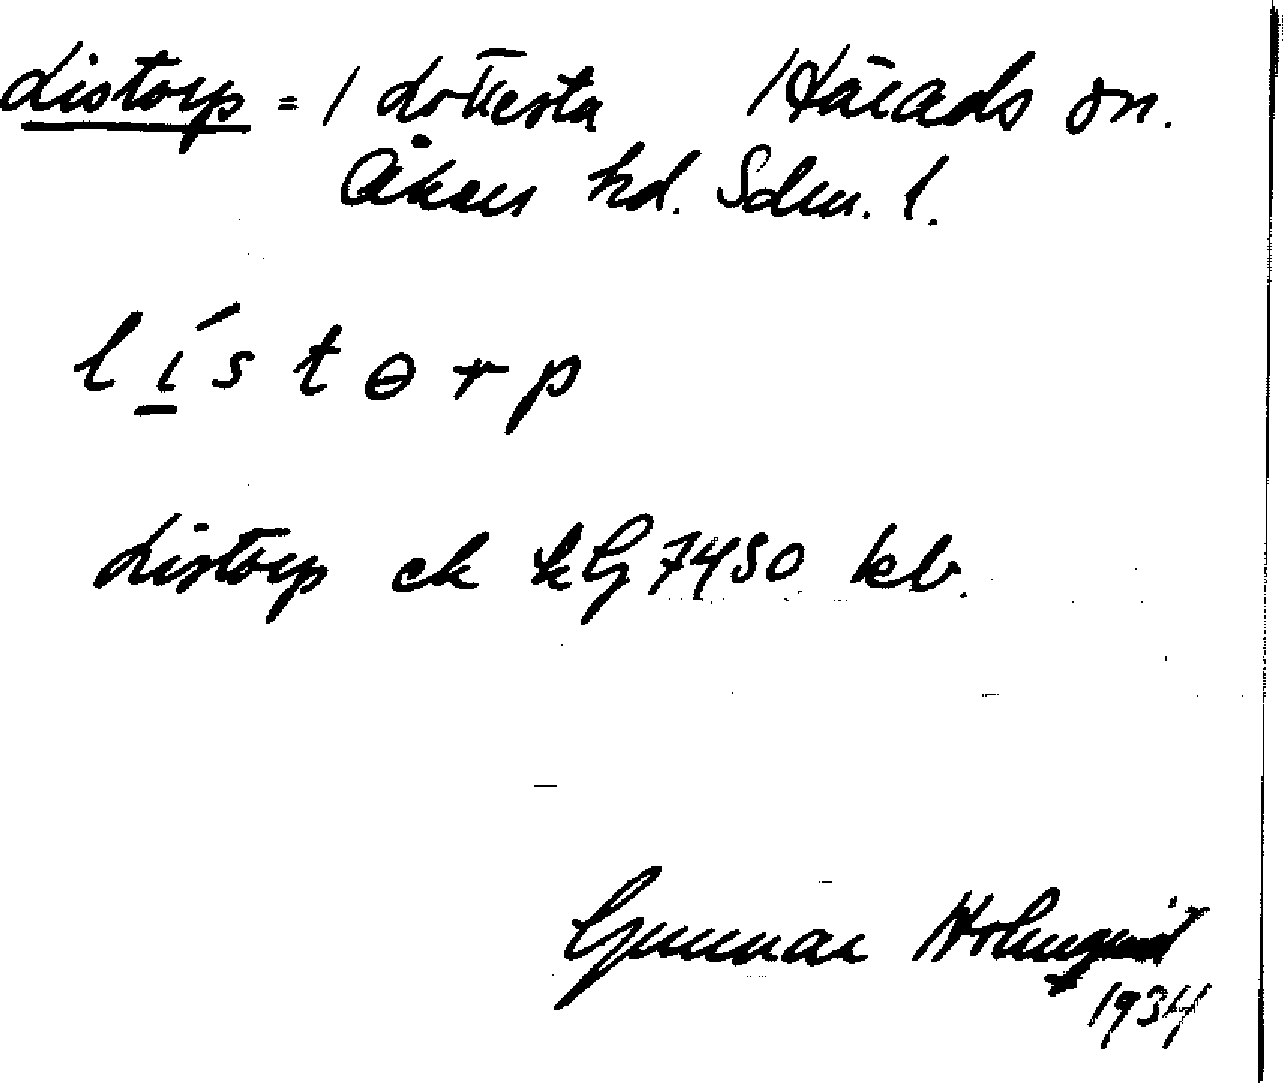 Listorp = / Lottesta / Härads sn.
Åkers hd. Sdm. l.
l í s t ɵ r p
Listorp ek kG 7450 kb.
Gunnar Holmquist
1934